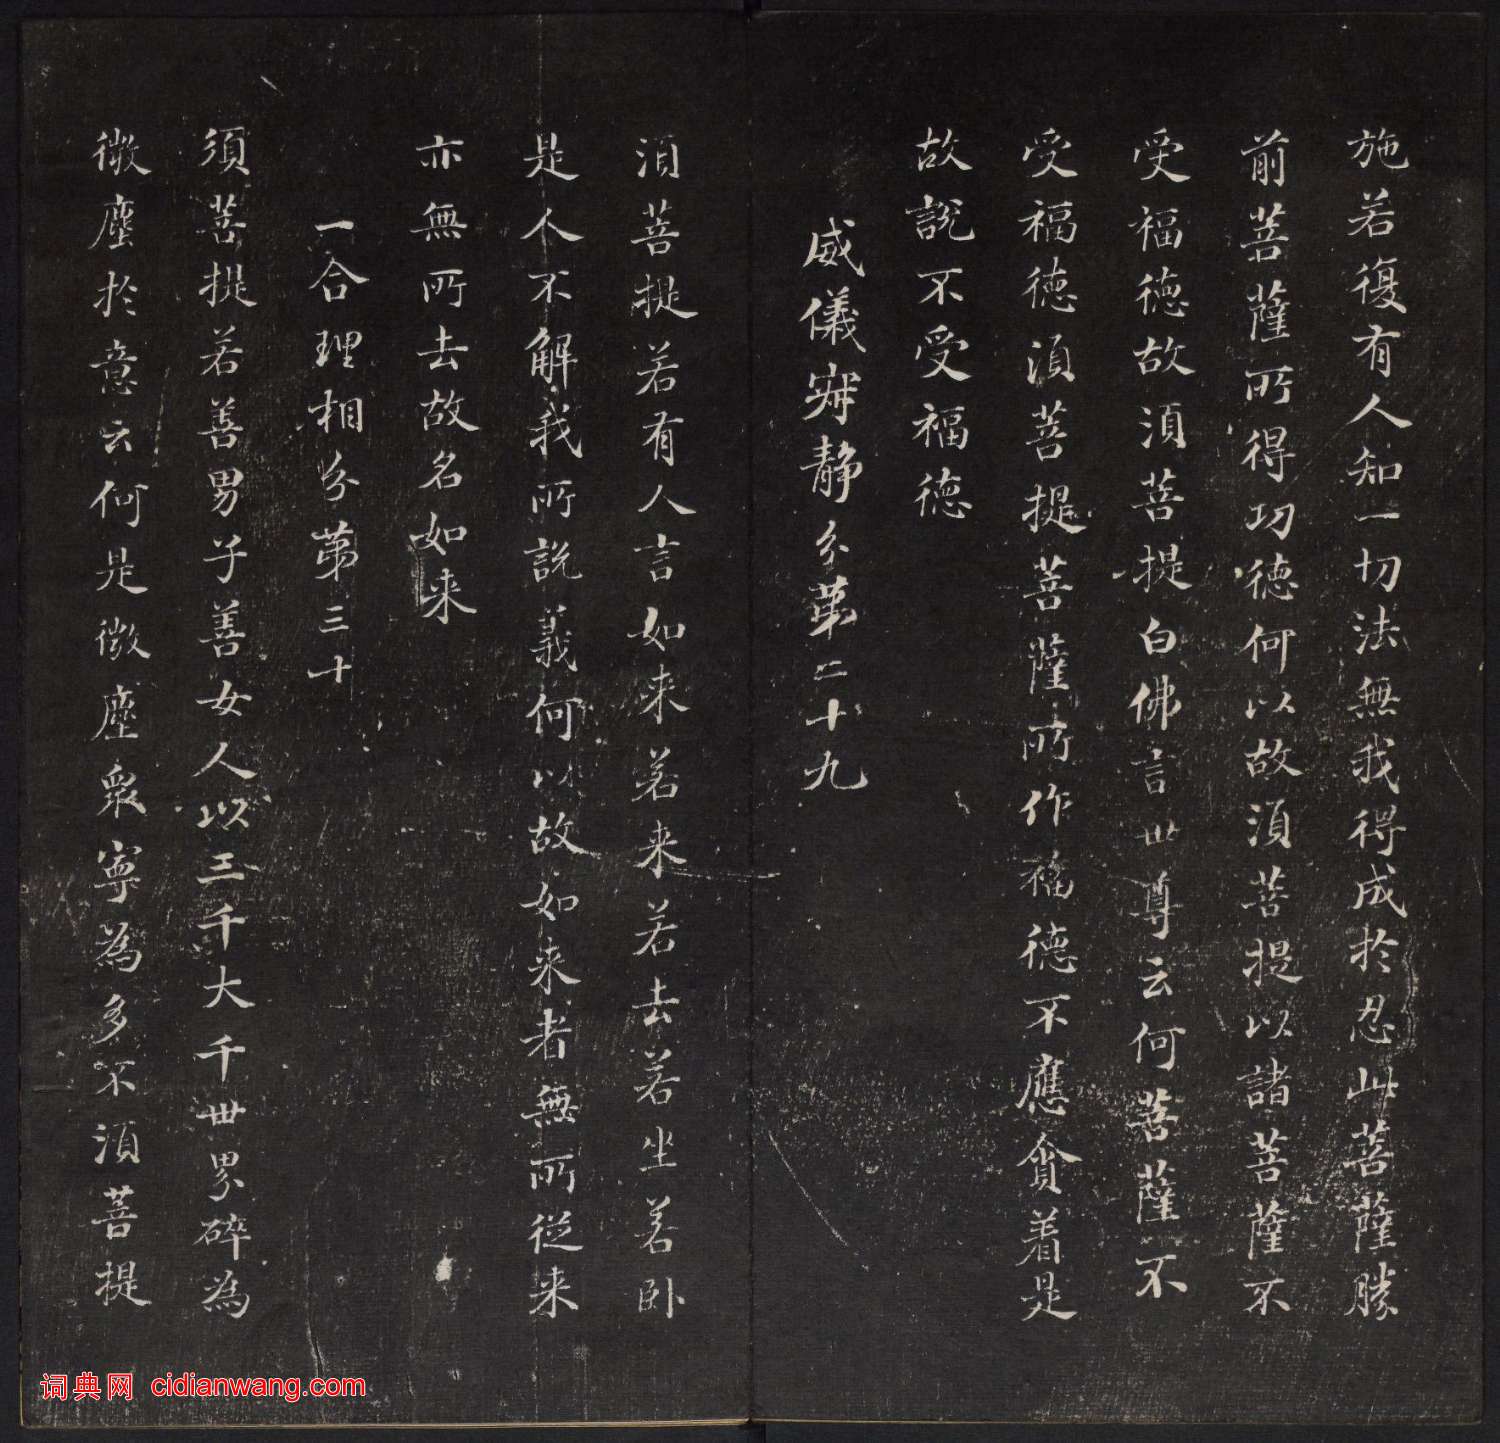 施若復有人知一切法無我得成於忍此菩薩勝
前菩薩所得功德何以故須菩提以諸菩薩不
受福德故須菩提白佛言世尊云何菩薩不
受福德須菩提菩薩所作福德不應貪着是
故說不受福德
威儀寂静分第二十九
須菩提若有人言如来若来若去若坐若卧
是人不解我所說義何以故如来者無所從来
亦無所去故名如来
一合理相分第三十
須菩提若善男子善女人以三千大千世界碎為
微塵於意云何是微塵衆寧為多不須菩提
词典网 cidianwang.com